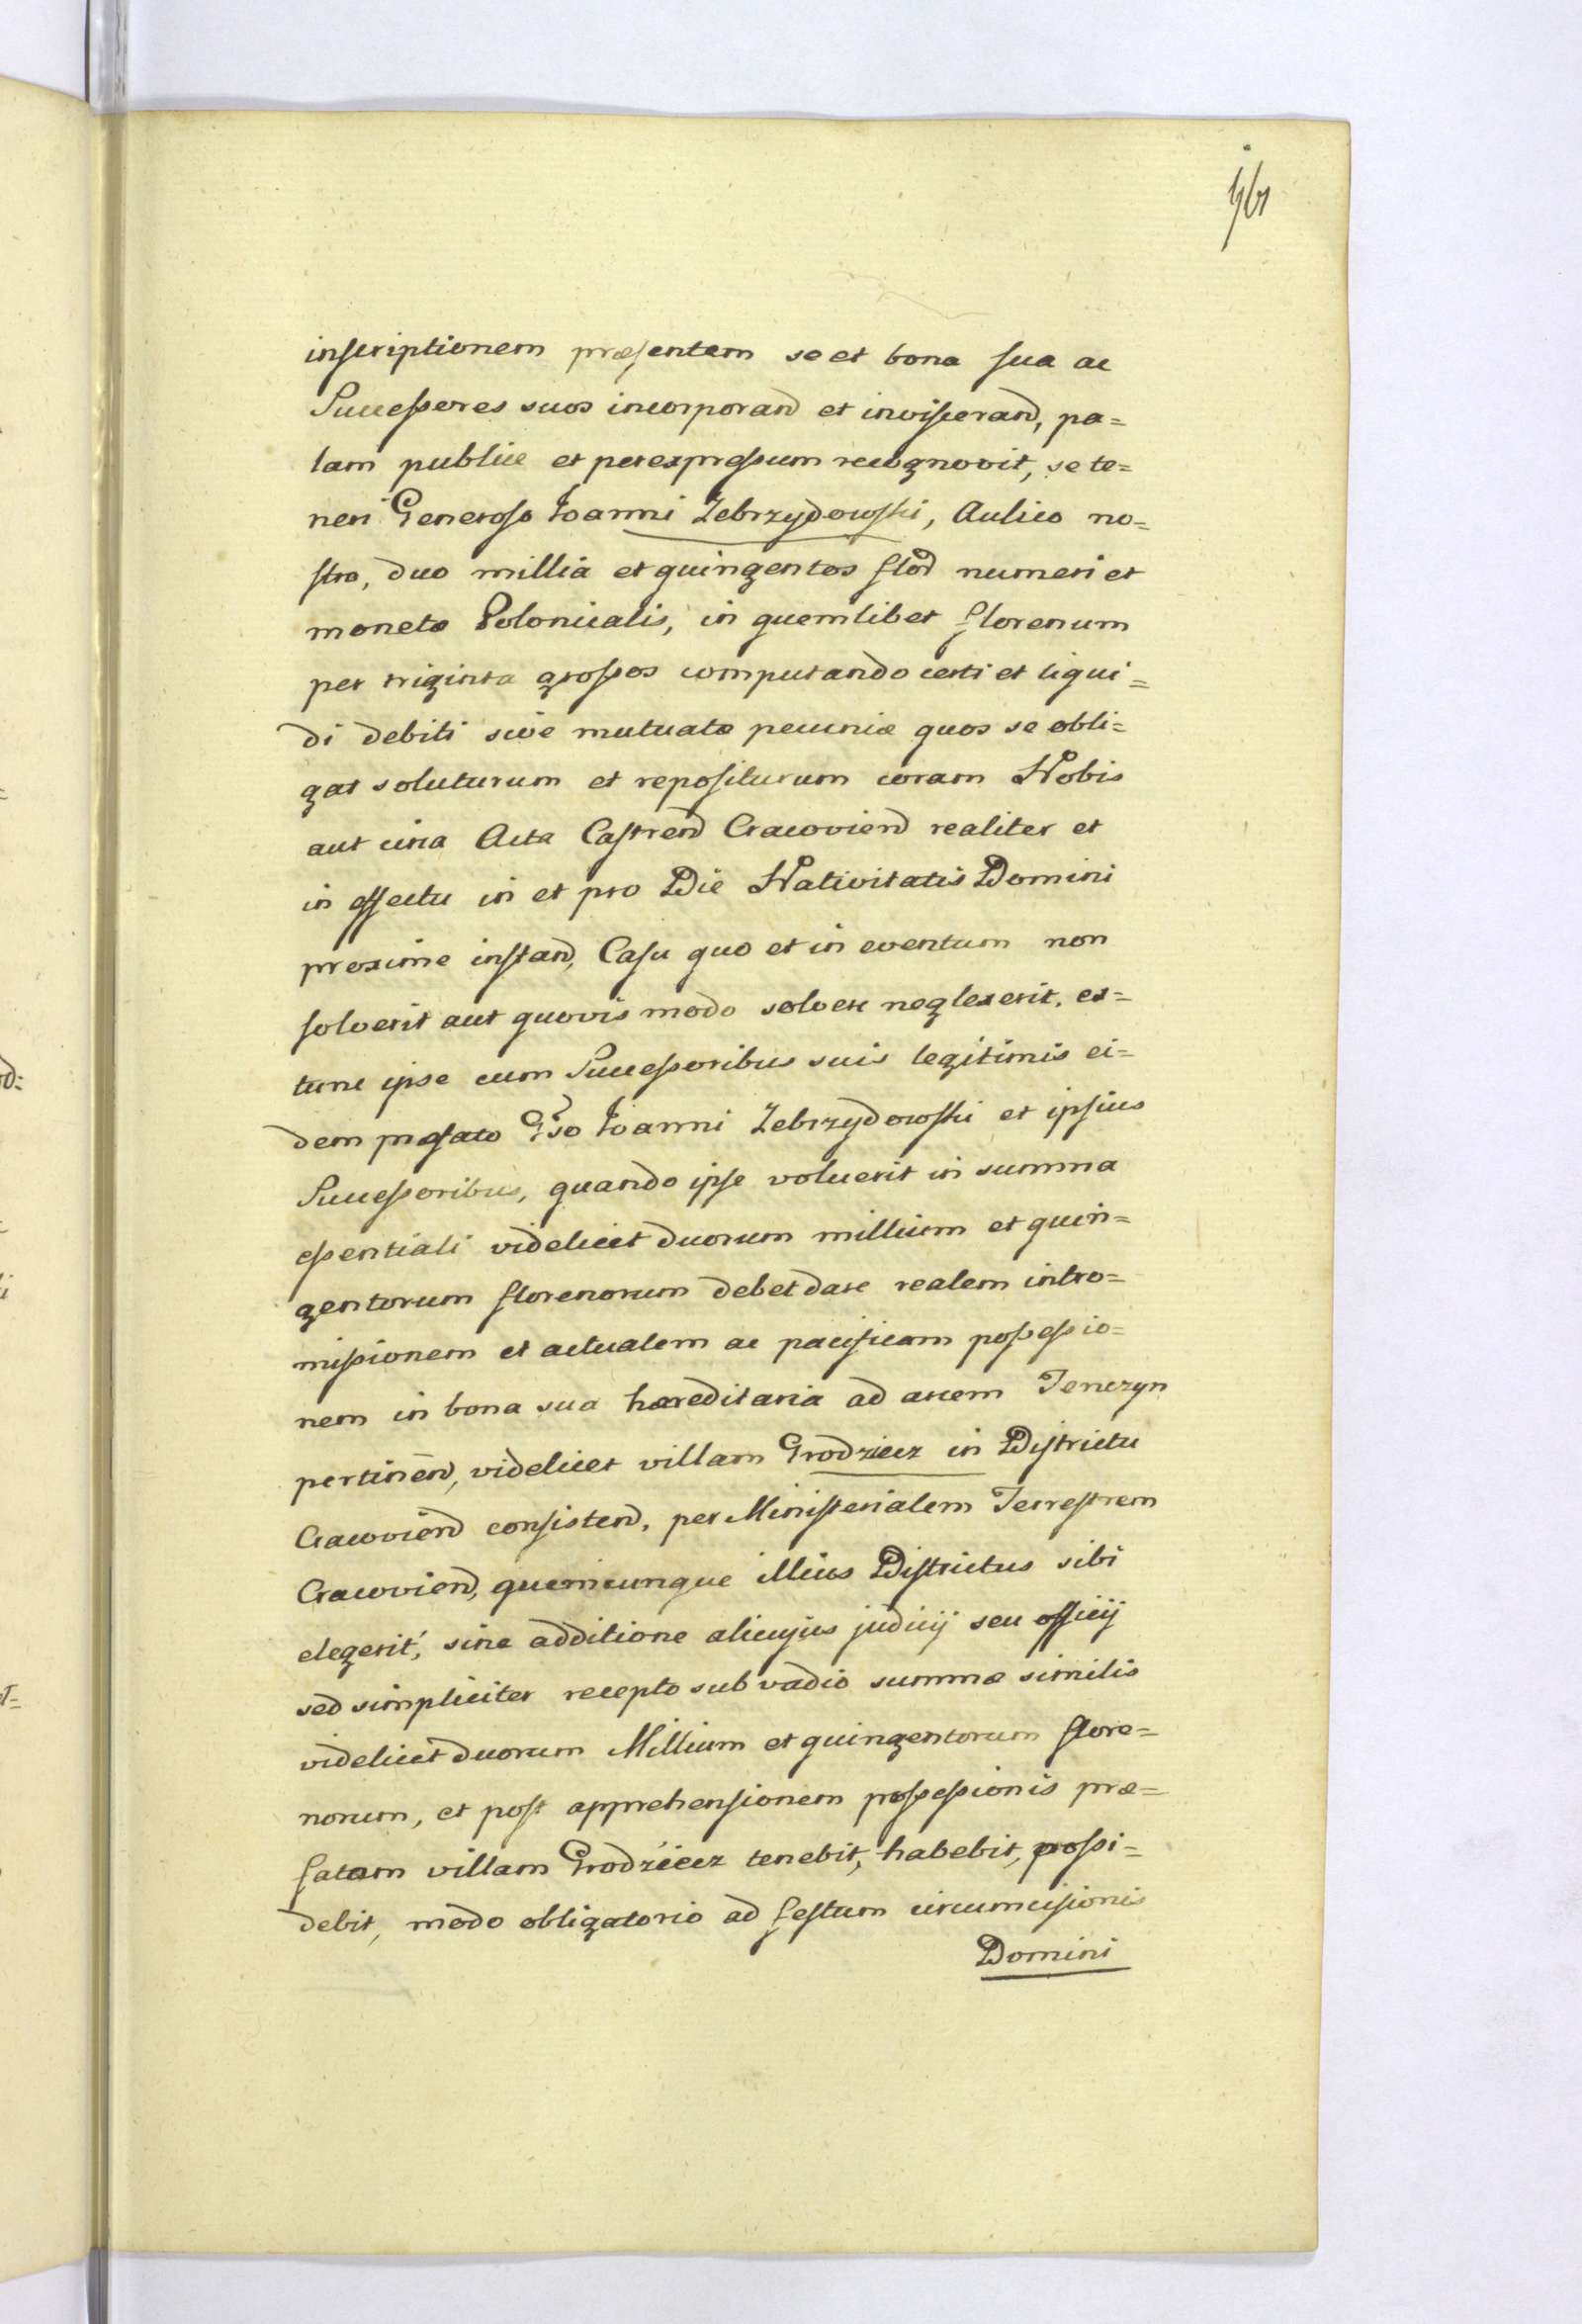 inscriptionem præsentem se et bona sua ac
Successores suos incorporand et inviscerand, pa=
lam publice et per expressum recognovit, se te=
neri Generoso Ioanni Zebrzydowski, Aulico no=
stro, duo millia et quingentos flod numeri et
monetæ Polonicalis, in quemlibet florenum
per triginta grossos computando certi et liqui=
di debiti sive mutuatæ pecuniæ quos se obli=
gat soluturum et repositurum coram Nobis
aut circa Acta Castrend Cracoviend realiter et
in effectu in et pro Die Nativitatis Domini
proxime instand, Casu quo et in eventum non
solverit aut quovis modo solvere neglexerit, ex=
tunc ipse cum Successoribus suis legitimis ei=
dem præfato Gso Ioanni Zebrzydowski et ipsius
Successoribus, quando ipse voluerit in summa
essentiali videlicet duorum millium et quin=
gentorum florenorum debet dare realem intro=
missionem et actualem ac pacificam possessio=
nem in bona sua hæreditaria ad arcem Tenczyn
pertinend, videlicet villam Grodziecz in Districtu
Cracoviend consistend, per Ministerialem Terrestrem
Cracoviend, quemcunque illius Districtus sibi
elegerit, sine additione alicujus judicij seu officij
sed simpliciter recepto sub vadio summæ similis
videlicet duorum Millium et quingentorum flore=
norum, et post apprehensionem possessionis præ=
fatam villam Grodziecz tenebit, habebit, possi=
debit, modo obligatorio ad festum circumcisionis
Domini